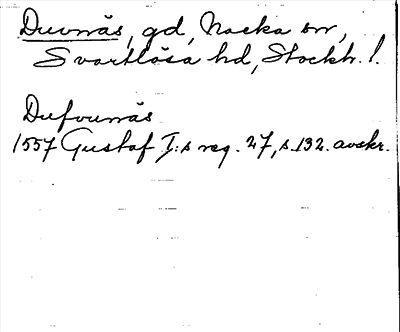 Duvnäs, gd, Nacka sn,
Svartlösa hd, Stockh. l.
Dufvunäs
1557 Gustaf I:s reg. 27, s. 132. avskr.